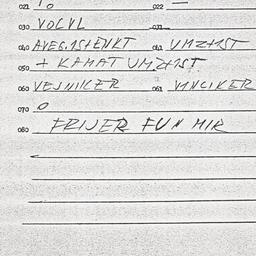 021 10 022 —
030 VOLVL 031
040 AVEG.ISHENKT 041 UMZIST
050 + KAMAT UMZIST
060 VEJNIKER 061 VINCIKER
070 O
080 FRIJER FUN MIR